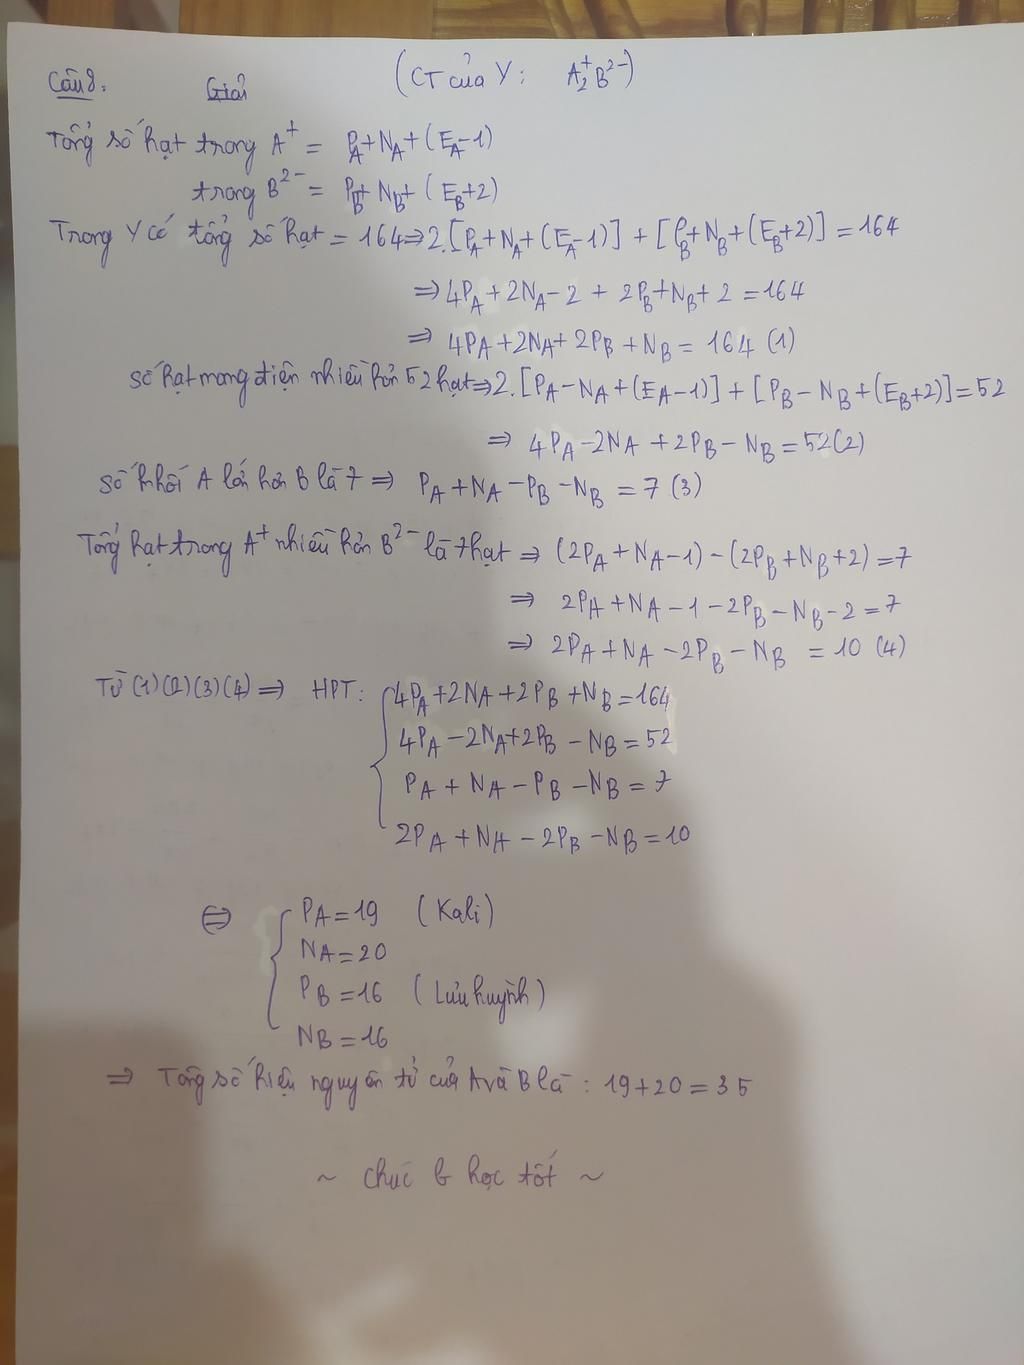 Câu 8: Giải (CT của Y: A₂⁺B²⁻)
Tổng số hạt trong A⁺ = P_A + N_A + (E_A - 1)
trong B²⁻ = P_B + N_B + (E_B + 2)
Trong Y có tổng số hạt = 164 ⇒ 2.[P_A + N_A + (E_A - 1)] + [P_B + N_B + (E_B + 2)] = 164
⇒ 4P_A + 2N_A - 2 + 2P_B + N_B + 2 = 164
⇒ 4P_A + 2N_A + 2P_B + N_B = 164 (1)
Số hạt mang điện nhiều hơn 52 hạt ⇒ 2.[P_A - N_A + (E_A - 1)] + [P_B - N_B + (E_B + 2)] = 52
⇒ 4P_A - 2N_A + 2P_B - N_B = 52 (2)
Số khối A lớn hơn B là 7 ⇒ P_A + N_A - P_B - N_B = 7 (3)
Tổng hạt trong A⁺ nhiều hơn B²⁻ là 7 hạt ⇒ (2P_A + N_A - 1) - (2P_B + N_B + 2) = 7
⇒ 2P_A + N_A - 1 - 2P_B - N_B - 2 = 7
⇒ 2P_A + N_A - 2P_B - N_B = 10 (4)
Từ (1) (2) (3) (4) ⇒ HPT: { 4P_A + 2N_A + 2P_B + N_B = 164
4P_A - 2N_A + 2P_B - N_B = 52
P_A + N_A - P_B - N_B = 7
2P_A + N_A - 2P_B - N_B = 10
⇔ { P_A = 19 (Kali)
N_A = 20
P_B = 16 (Lưu huỳnh)
N_B = 16
⇒ Tổng số hiệu nguyên tử của A và B là: 19 + 20 = 35
~ Chúc b học tốt ~